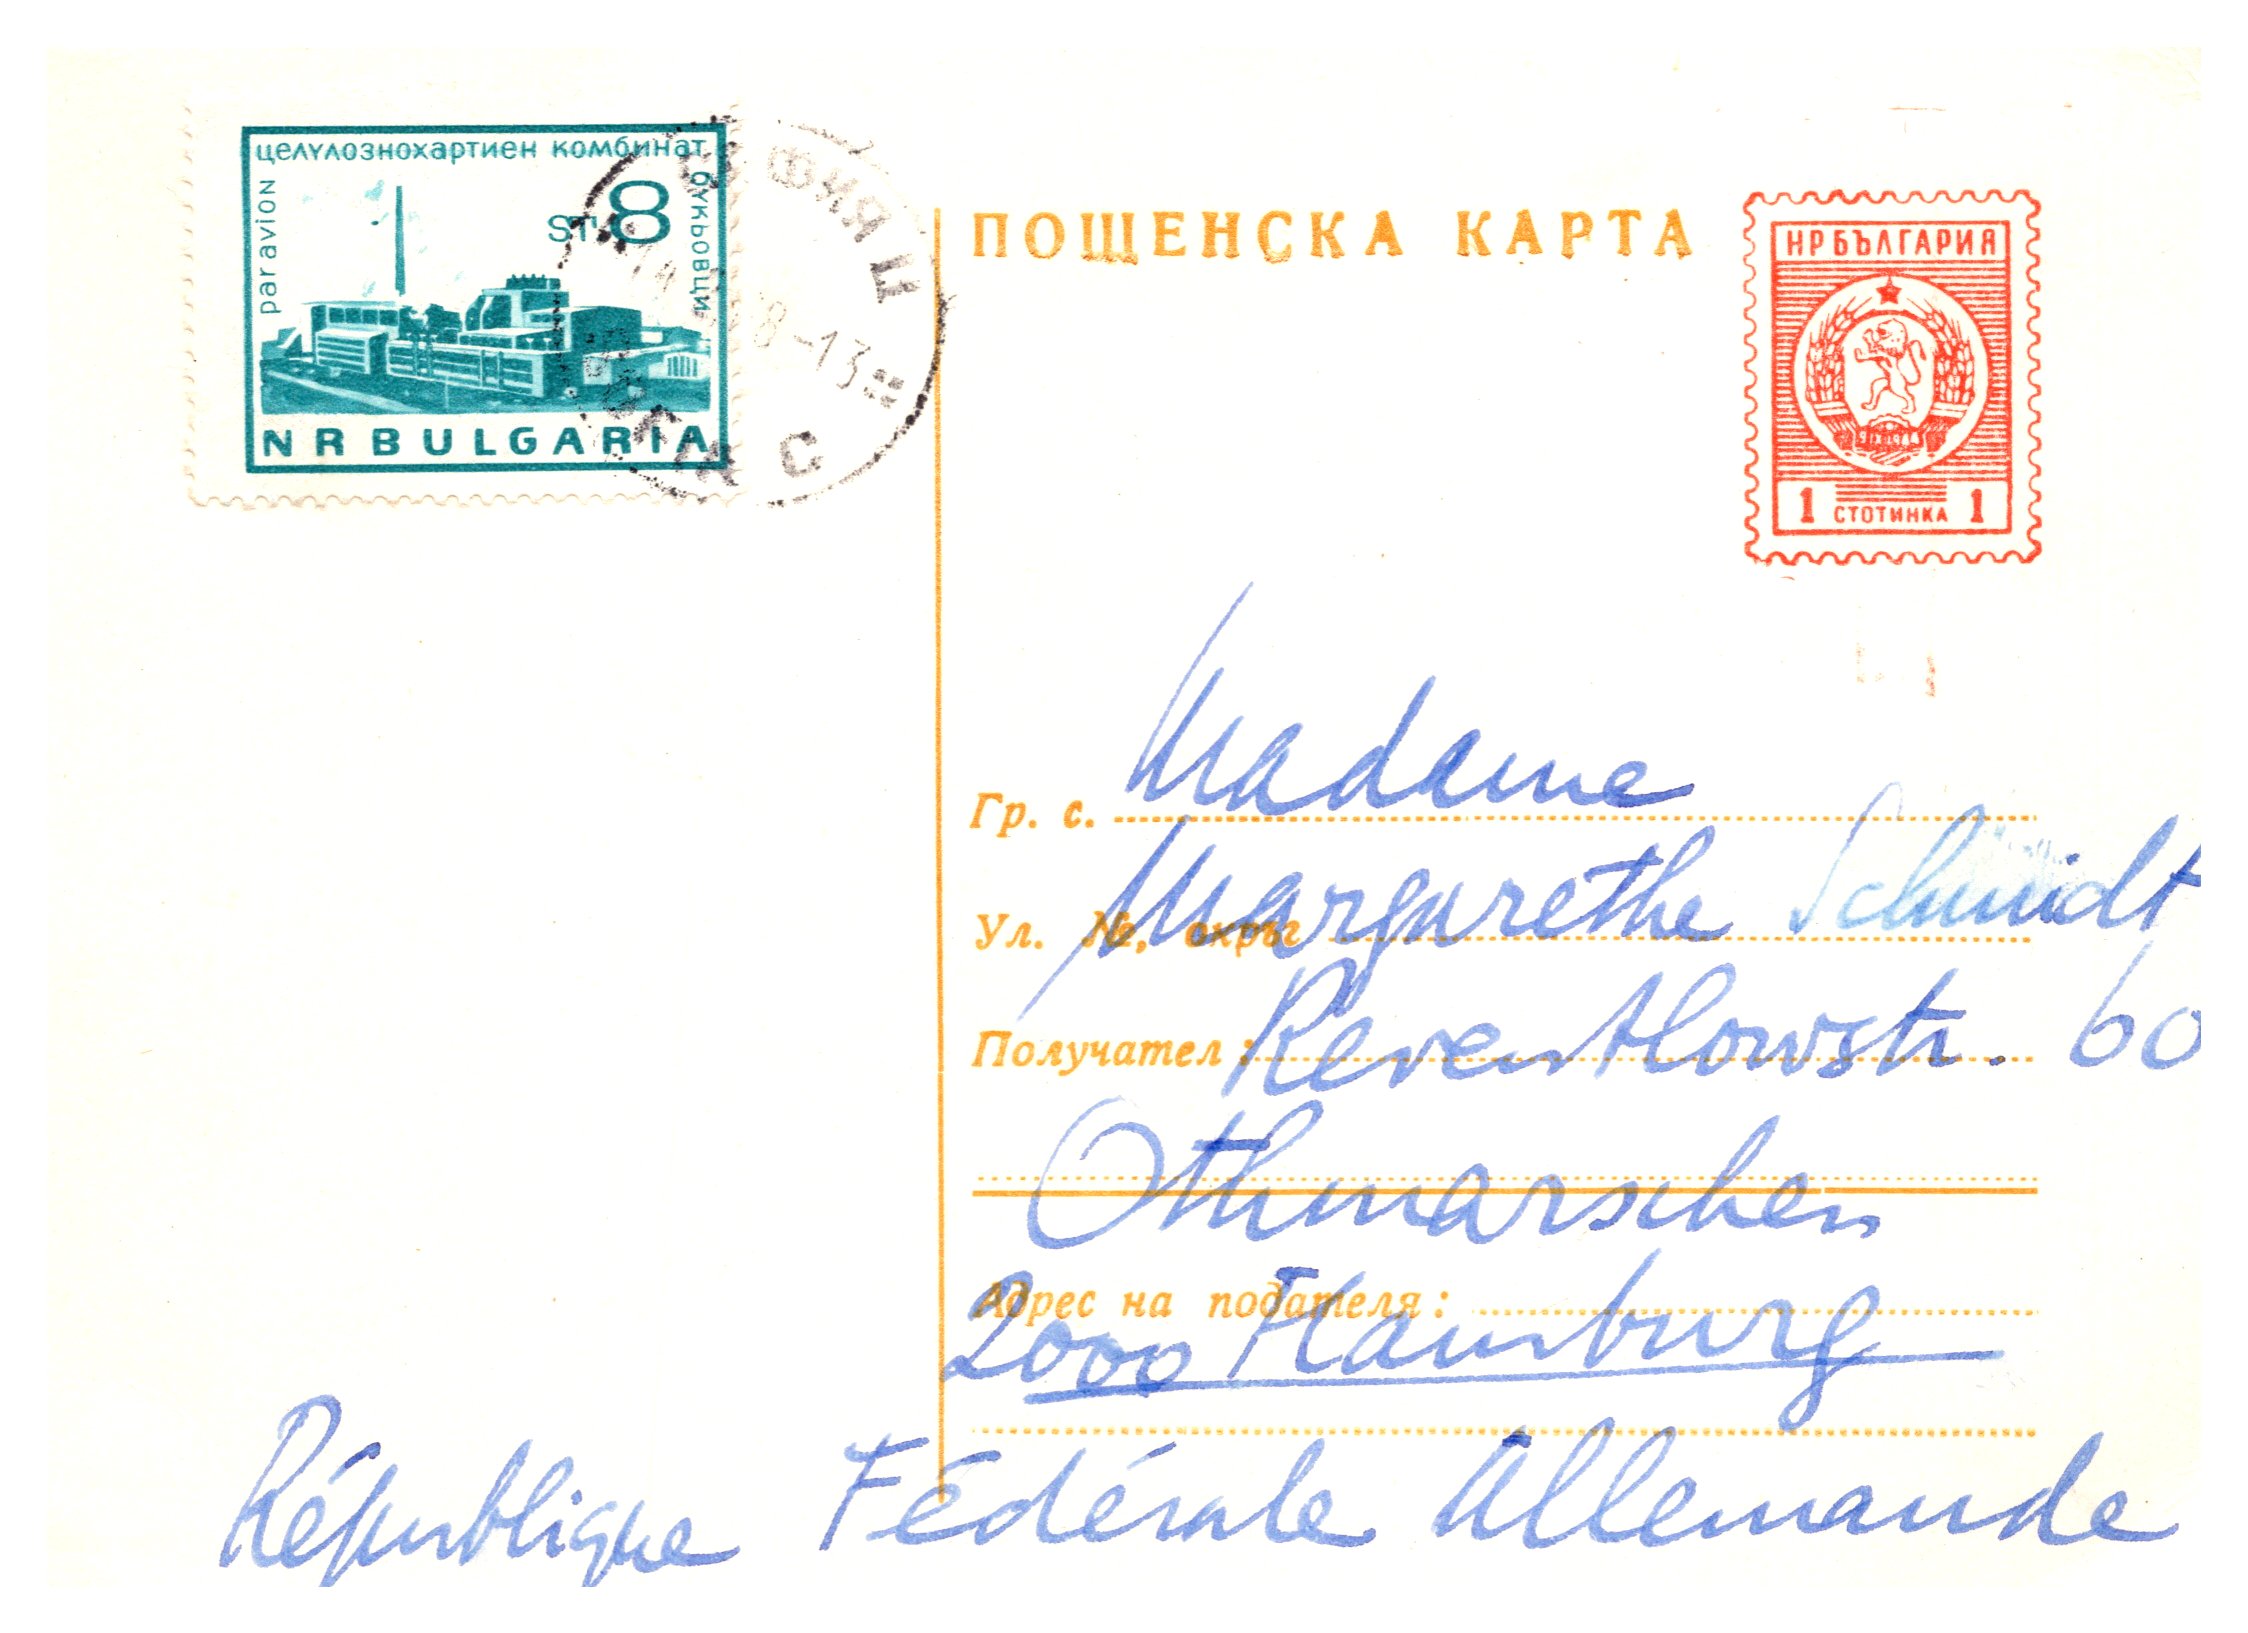 целулознохартиен комбинат
букьовци
paravion
ST. 8
NRBULGARIA
София Ц
-13
ПОЩЕНСКА КАРТА
НР БЪЛГАРИЯ
9 IX 1944
1 СТОТИНКА 1
Гр. с. Madame
Ул. №, окръг Margarethe Schmidt
Получател: Reventlowstr. 60
Othmarschen
Адрес на подателя:
2000 Hamburg
République Fédérale Allemande